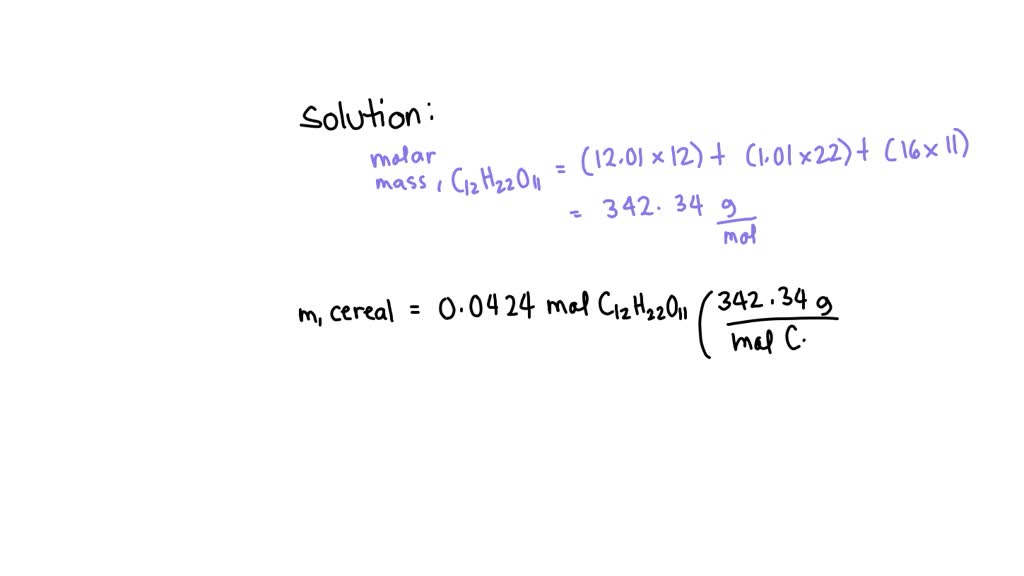 Solution:
molar
mass, C₁₂H₂₂O₁₁ = (12.01 × 12) + (1.01 × 22) + (16 × 11)
= 342.34 g/mol
m, cereal = 0.0424 mol C₁₂H₂₂O₁₁ (342.34 g / mol C.